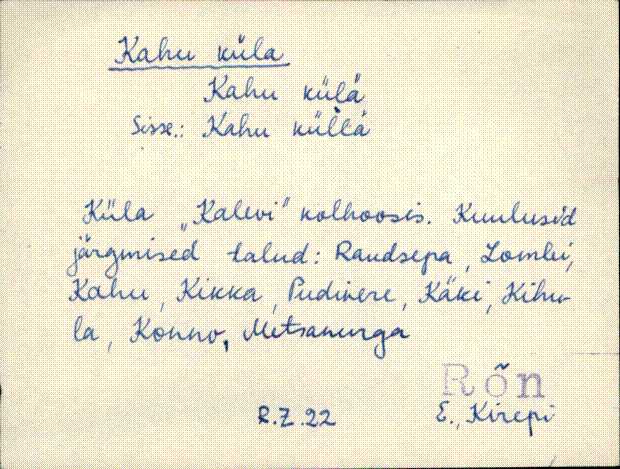 Kahu küla
Kahu külä
Sisse.: Kahu küllä
Küla „Kalevi" kolhoosis. Kuulusid
järgmised talud: Raudsepa, Lombi,
Kahu, Kikka, Pudivere, Käki, Kihu-
la, Konno, Metsanurga
Rõn
R.Z.22 E., Kirepi